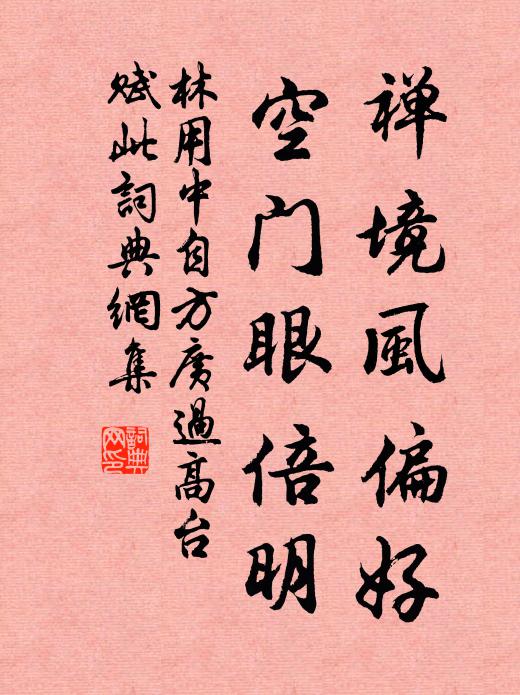 禅境風偏好
空门眼倍明
林用中自方廣過高台
赋此詞典網集
詞典网印